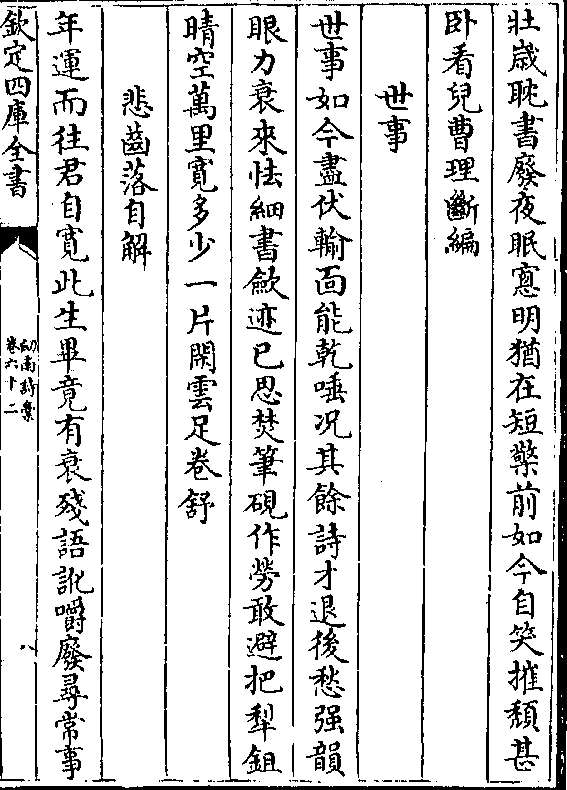 壯歳耽書廢夜眠窻明猶在短檠前如今自笑摧頽甚
卧看兒曹理斷編
世事
世事如今盡伏輸面能乾唾况其餘詩才退後愁强韻
眼力衰來怯細書歛迹已思焚筆硯作勞敢避把犁鉏
晴空萬里寛多少一片閑雲足卷舒
悲齒落自解
年運而往君自寛此生畢竟有衰殘語訛嚼廢尋常事
欽定四庫全書
劒南詩藁
卷六十二
八